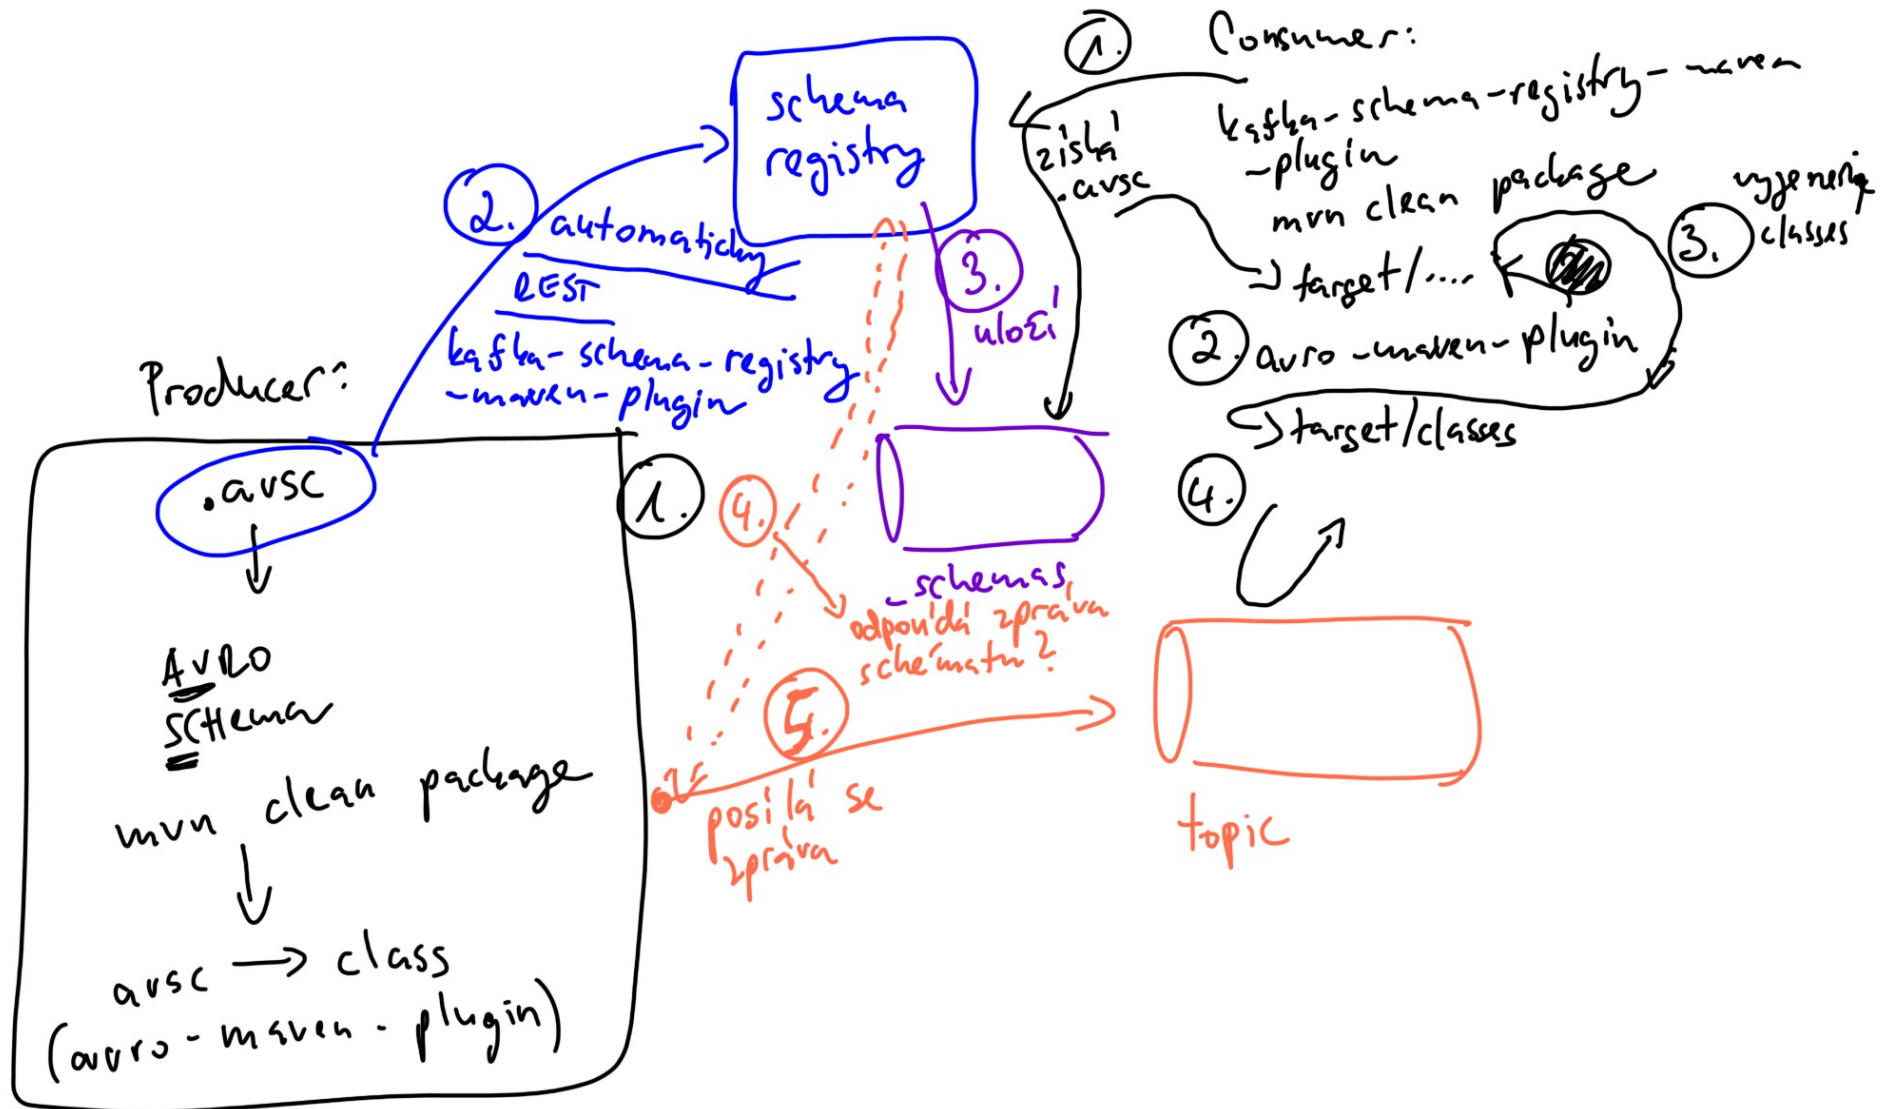 Producer:
.avsc
AVRO
SCHema
mvn clean package
avsc → class
(avro-maven-plugin)
1.
2.
automaticky
REST
kafka-schema-registry
-maven-plugin
schema
registry
3.
uloží
_schemas
4.
odpovídá zpráva
schématu?
5.
posílá se
zpráva
topic
1.
Consumer:
kafka-schema-registry-maven
-plugin
získá
.avsc
mvn clean package
target/....
2.
avro-maven-plugin
3.
classes
target/classes
4.